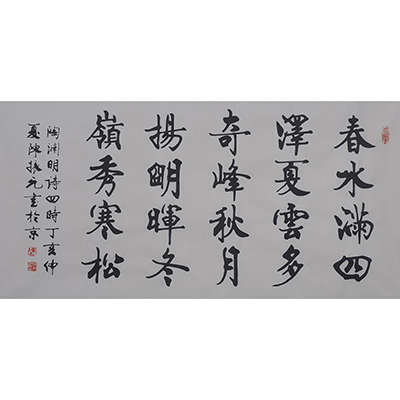 春水滿四
澤夏雲多
奇峰秋月
揚明暉冬
嶺秀寒松
陶渊明詩四時丁亥仲
夏陳振元書於京